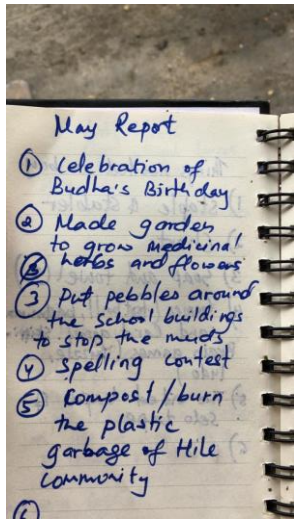 May Report
① Celebration of
Budha's Birthday
② Made garden
to grow medicinal
herbs and flowers
③ Put pebbles around
the school buildings
to stop the muds
④ Spelling contest
⑤ Compost/burn
the plastic
garbage of Hile
community
⑥